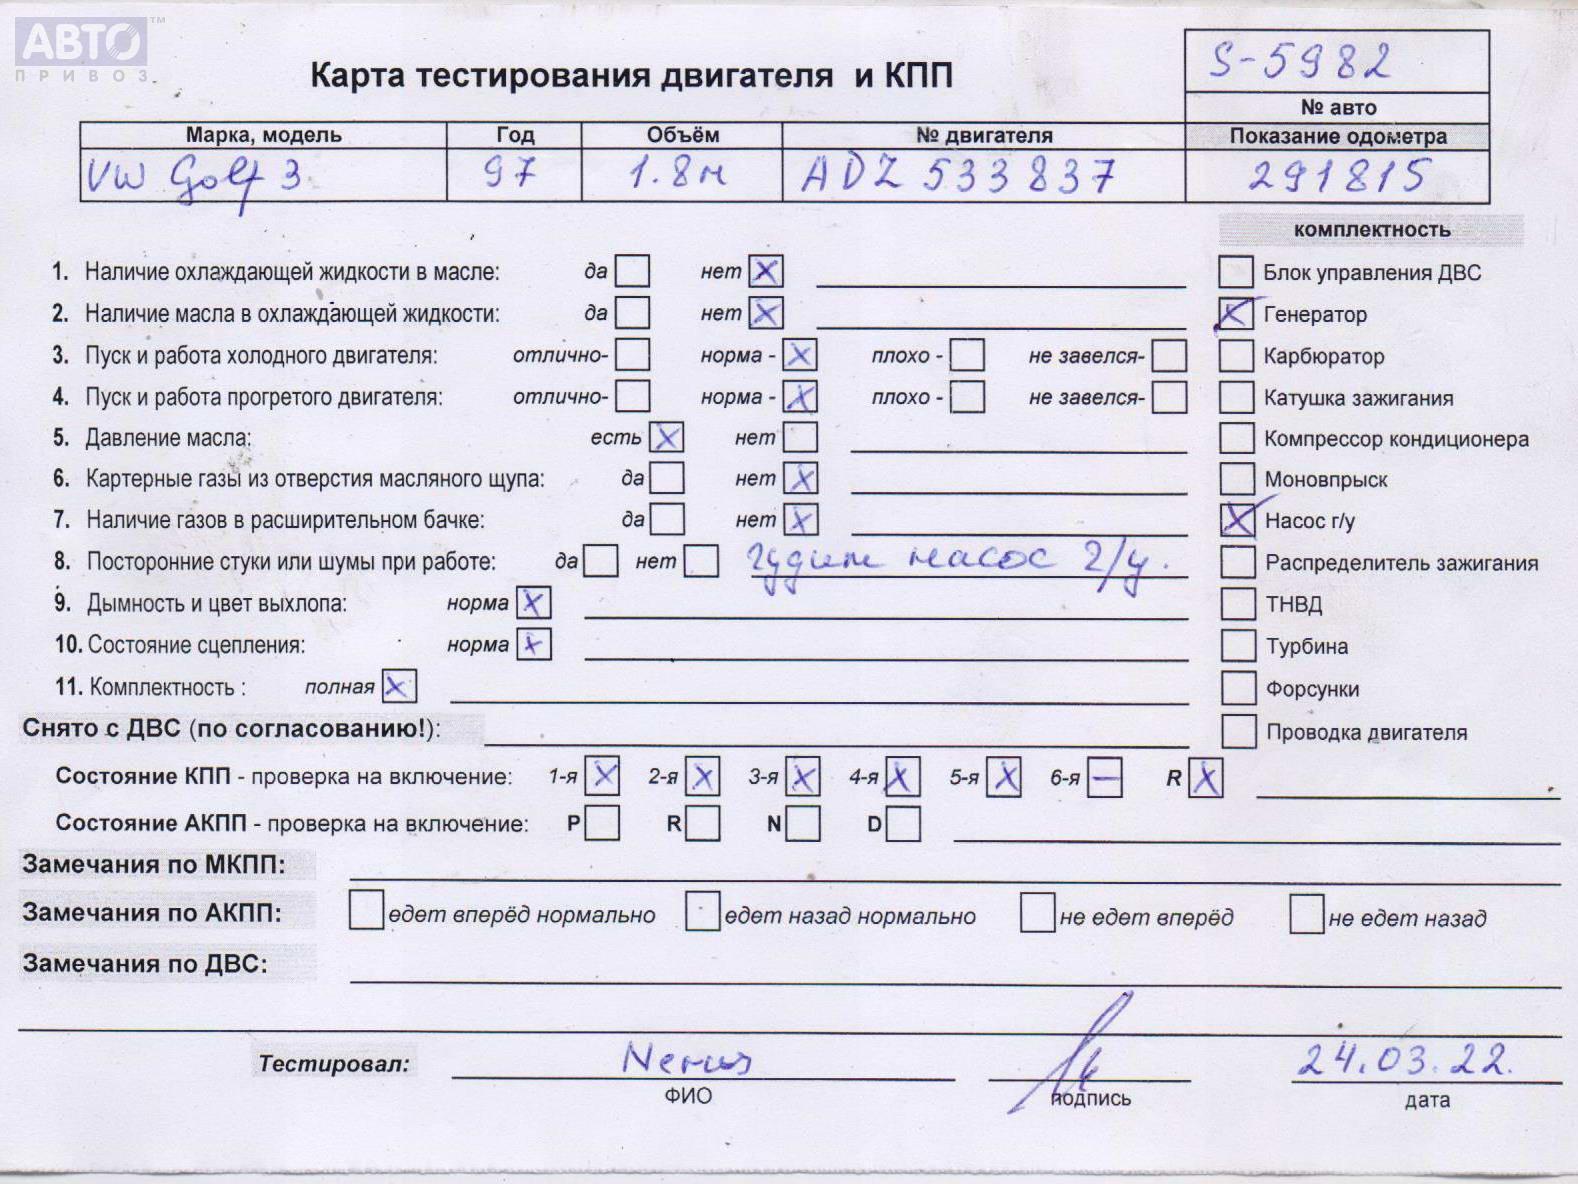 АВТО ™
ПРИВОЗ
S-5982
Карта тестирования двигателя и КПП
№ авто
Марка, модель Год Объём № двигателя Показание одометра
VW Golf 3 97 1.8м ADZ 533837 291815
комплектность
1. Наличие охлаждающей жидкости в масле: да нет X Блок управления ДВС
2. Наличие масла в охлаждающей жидкости: да нет X X Генератор
3. Пуск и работа холодного двигателя: отлично- норма - X плохо - не завелся- Карбюратор
4. Пуск и работа прогретого двигателя: отлично- норма - X плохо - не завелся- Катушка зажигания
5. Давление масла: есть X нет Компрессор кондиционера
6. Картерные газы из отверстия масляного щупа: да нет X Моновпрыск
7. Наличие газов в расширительном бачке: да нет X X Насос г/у
8. Посторонние стуки или шумы при работе: да нет гудит насос г/у. Распределитель зажигания
9. Дымность и цвет выхлопа: норма X ТНВД
10. Состояние сцепления: норма X Турбина
11. Комплектность : полная X Форсунки
Снято с ДВС (по согласованию!): Проводка двигателя
Состояние КПП - проверка на включение: 1-я X 2-я X 3-я X 4-я X 5-я X 6-я — R X
Состояние АКПП - проверка на включение: P R N D
Замечания по МКПП:
Замечания по АКПП: едет вперёд нормально едет назад нормально не едет вперёд не едет назад
Замечания по ДВС:
Тестировал: 24.03.22.
ФИО подпись дата